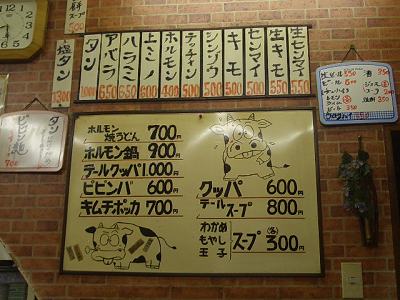 餅
スープ
500
塩タン
1300
タン
1000
アバラ
650
ハラミ
650
上ミノ
600
ホルモン
600
テッチャン
500
シンゾウ
500
キモ
500
センマイ
500
生キモ
550
生センマイ
550
ホルモン
焼うどん 700円
ホルモン鍋 900円
テールクッパ 1,000円
ビビンバ 600円
キムチポッカ 700円
クッパ 600円
テール
スープ 800円
わかめ
もやし
玉子
スープ (各) 300円
生ビール 550
酒 350